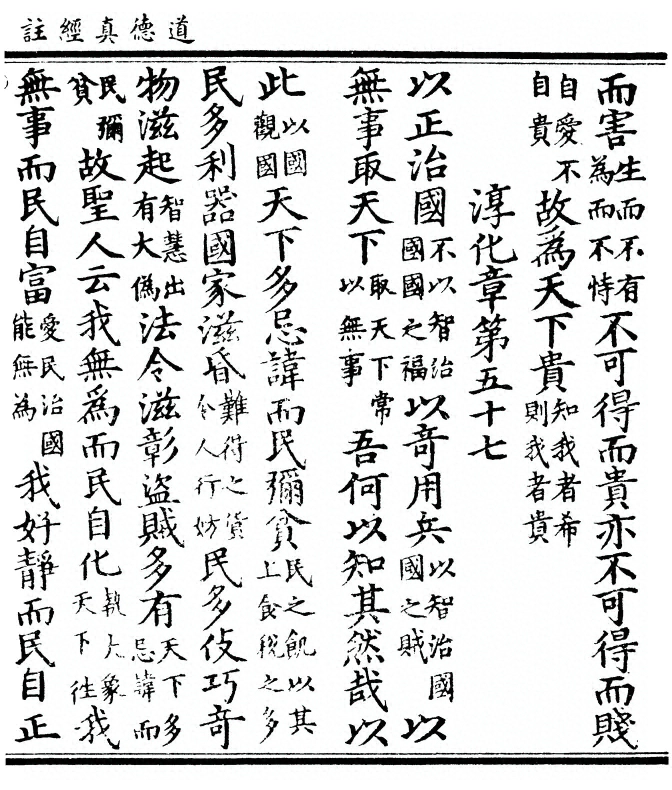 道德真經註
而害生而不有為而不恃不可得而貴亦不可得而賤
自愛不自貴故為天下貴知我者希則我者貴
淳化章第五十七
以正治國不以智治國國之福以奇用兵以智治國國之賊以
無事取天下取天下常以無事吾何以知其然哉以
此以國觀國天下多忌諱而民彌貧民之飢以其上食稅之多
民多利器國家滋昏難得之貨令人行妨民多伎巧奇
物滋起智慧出有大偽法令滋彰盜賊多有天下多忌諱而
民彌貧故聖人云我無為而民自化執大象天下往我
無事而民自富愛民治國能無為我好靜而民自正